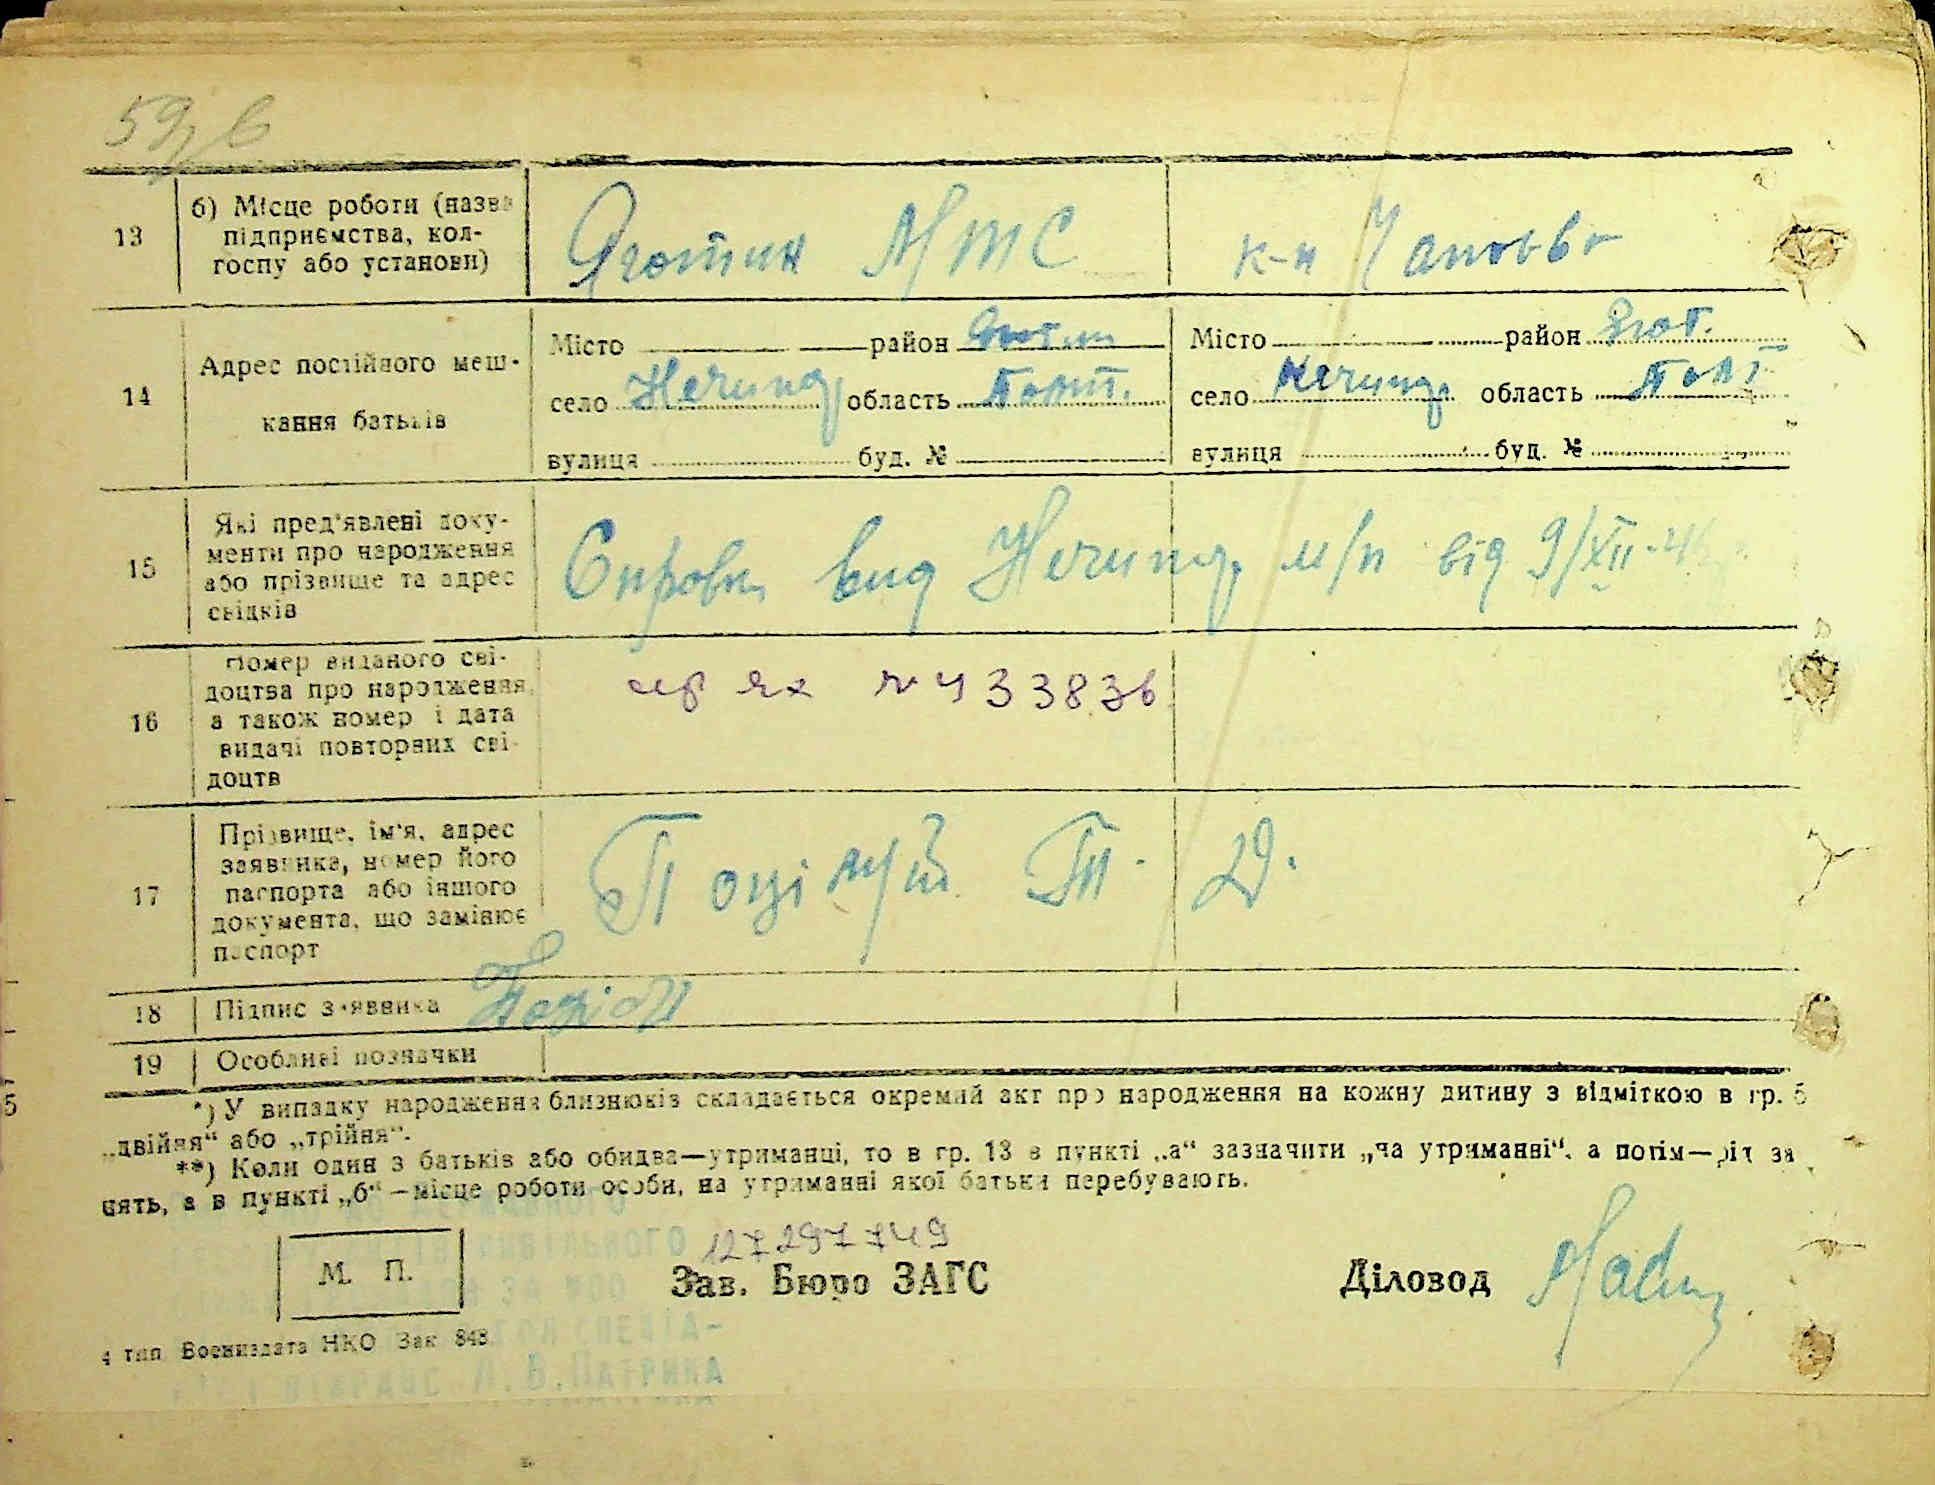 59
13
б) Місце роботи (назва
підприємства, кол-
госпу або установи)
Яготин МТС
к-п Чапаєва
14
Адрес постійного меш-
кання батьків
Місто район
село область Полт.
вулиця буд. №
Місто район Ягот.
село область Полт
вулиця буд. №
15
Які пред'явлені доку-
менти про народження
або прізвище та адрес
свідків
Справка м/п від 9/XII-46
16
Номер виданого сві-
доцтва про народження,
а також номер і дата
видачі повторних сві-
доцтв
433836
17
Прізвище, ім'я, адрес
заявника, номер його
паспорта або іншого
документа, що замінює
паспорт
Т. Д.
18
Підпис заявника
19
Особливі позначки
*) У випадку народження близнюків складається окремий акт про народження на кожну дитину з відміткою в гр. 5
„двійня“ або „трійня“.
**) Коли один з батьків або обидва—утриманці, то в гр. 13 в пункті „а“ зазначити „на утриманні“, а потім—рід за
нять, а в пункті „б“ —місце роботи особи, на утриманні якої батьки перебувають.
127297749
М. П.
Зав. Бюро ЗАГС
Діловод
4 тип. Воениздата НКО Зак 843